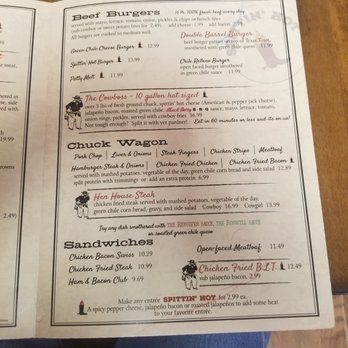 Beef Burgers
It is 100% fresh beef every day
served with mayo, lettuce, tomato, onion, pickles & chips or french fries
(sub cowboy or sweet potato fries for 2.49) add cheese 1.99 add bacon 2.99
All burgers are cooked to medium well
SPITTIN' HOT
Green Chile Cheese Burger 12.99
Spittin' Hot Burger 13.99
Patty Melt 11.99
Double Barrel Burger
beef burger patties served on Texas Toast, smothered with
green chile queso 11.99
Chile Relleno Burger
open faced burger smothered
in green chile sauce 11.99
The Cowboss - 10 gallon hat sized!
over 3 lbs of fresh ground chuck, spittin' hot cheese (American & pepper jack cheese),
jalapeño bacon, roasted green chile, sauce, mayo, lettuce, tomato,
onion rings, pickles, served with cowboy fries
Not tough enough? Split it with yer pardner! Eat in 60 minutes or less and its on us!
Chuck Wagon
Pork Chop | Liver & Onions | Steak Fingers | Chicken Strips | Meatloaf
Hamburger Steak & Onions | Chicken Fried Chicken | Chicken Fried Bacon
served with mashed potatoes, vegetable of the day, green chile corn bread, and side salad 12.89
split protein with trimmings or add an extra protein 6.99
Hen House Steak
chicken fried steak served with mashed potatoes, vegetable of the day,
green chile corn bread, gravy, and side salad Cowboy 16.99 Cowgirl 13.99
Try any dish smothered with THE REVOLVER SAUCE, THE ROSWELL SAUCE
or roasted green chile queso
Sandwiches
Chicken Bacon Swiss 10.29
Chicken Fried Steak 10.99
Ham & Bacon Club 9.69
Open-faced Meatloaf 11.49
Chicken Fried B.L.T. 12.49
sub jalapeño bacon 2.99
Make any entrée SPITTIN' HOT for 2.99 ea.
A spicy pepper cheese, jalapeño bacon or roasted jalapeños to add some heat
to your favorite entrée.